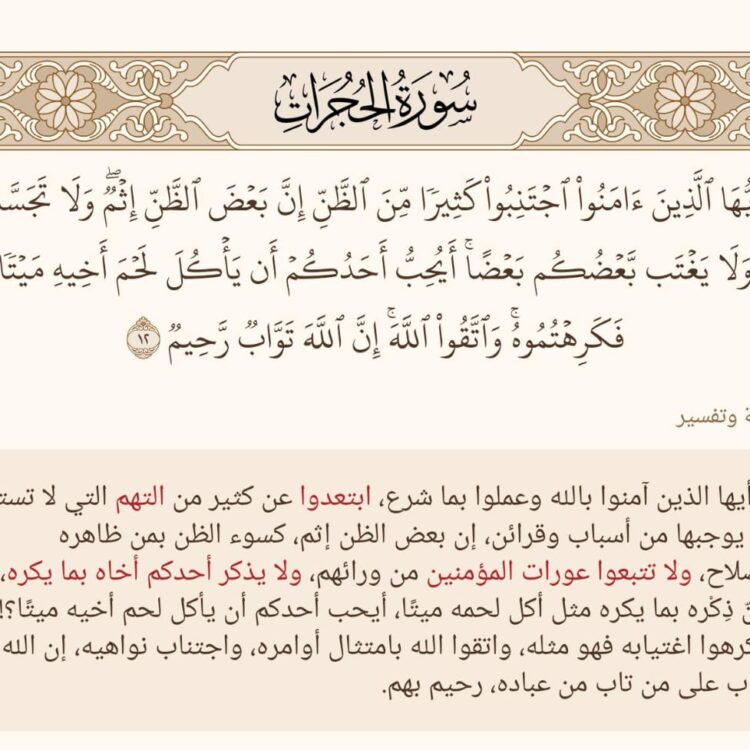 سُورَةُ الحُجُرَاتِ
ٱلَّذِينَ ءَامَنُوا۟ ٱجْتَنِبُوا۟ كَثِيرًا مِّنَ ٱلظَّنِّ إِنَّ بَعْضَ ٱلظَّنِّ إِثْمٌ ۖ وَلَا
وَلَا يَغْتَب بَّعْضُكُم بَعْضًا ۚ أَيُحِبُّ أَحَدُكُمْ أَن يَأْكُلَ لَحْمَ أَخِيهِ مَيْتًا
فَكَرِهْتُمُوهُ ۚ وَٱتَّقُوا۟ ٱللَّهَ ۚ إِنَّ ٱللَّهَ تَوَّابٌ رَّحِيمٌ ١٢
وتفسير
أيها الذين آمنوا بالله وعملوا بما شرع، ابتعدوا عن كثير من التهم التي لا
يوجبها من أسباب وقرائن، إن بعض الظن إثم، كسوء الظن بمن ظاهره
ولا تتبعوا عورات المؤمنين من ورائهم، ولا يذكر أحدكم أخاه بما يكره،
ذِكْره بما يكره مثل أكل لحمه ميتًا، أيحب أحدكم أن يأكل لحم أخيه ميتًا؟!
اغتيابه فهو مثله، واتقوا الله بامتثال أوامره، واجتناب نواهيه، إن الله
على من تاب من عباده، رحيم بهم.